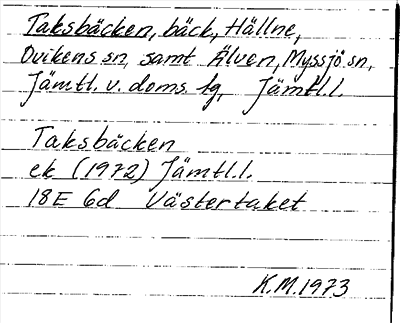 Taksbäcken, bäck, Hällne,
Ovikens sn, samt Älven, Myssjö sn,
Jämtl. v. doms. tg, Jämtl. l.
Taksbäcken
ek (1972) Jämtl. l.
18E 6d Västertaket
K.M. 1973